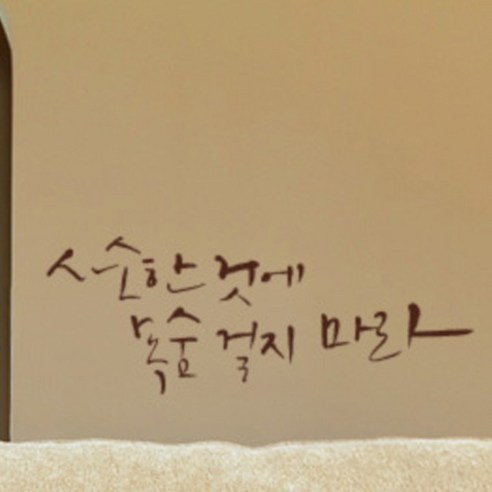 사소한 것에
목숨 걸지 마라